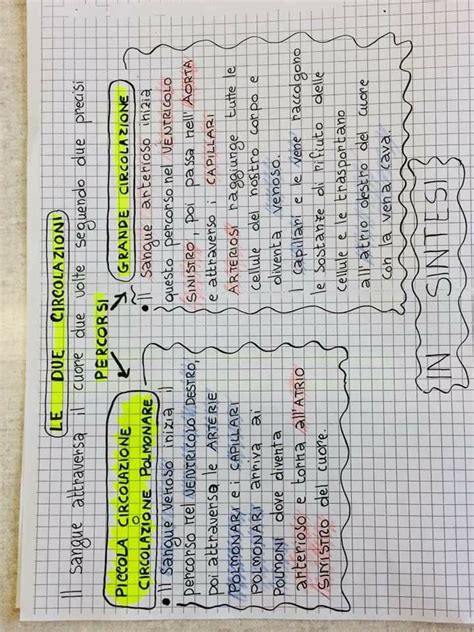 LE DUE CIRCOLAZIONI
Il sangue attraversa il cuore due volte seguendo due precisi
PERCORSI
PICCOLA CIRCOLAZIONE
O
CIRCOLAZIONE POLMONARE
• Il Sangue Venoso inizia il
percorso nel VENTRICOLO DESTRO,
poi attraversa le ARTERIE
POLMONARI e i CAPILLARI
POLMONARI arriva ai
POLMONI dove diventa
arterioso e torna all'ATRIO
SINISTRO del cuore.
GRANDE CIRCOLAZIONE
• Il Sangue arterioso inizia
questo percorso nel VENTRICOLO
SINISTRO, poi passa nell'AORTA
e attraverso i CAPILLARI
ARTERIOSI raggiunge tutte le
cellule del nostro corpo e
diventa venoso.
I Capillari e le vene raccolgono
le sostanze di rifiuto delle
cellule e le trasportano
all'atrio destro del cuore
con la vena cava.
IN SINTESI